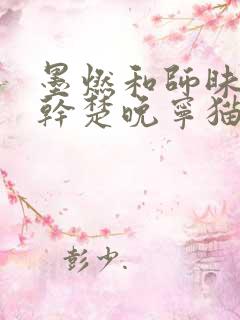 墨燃和師昧
幹楚晚寧猫
彭少.